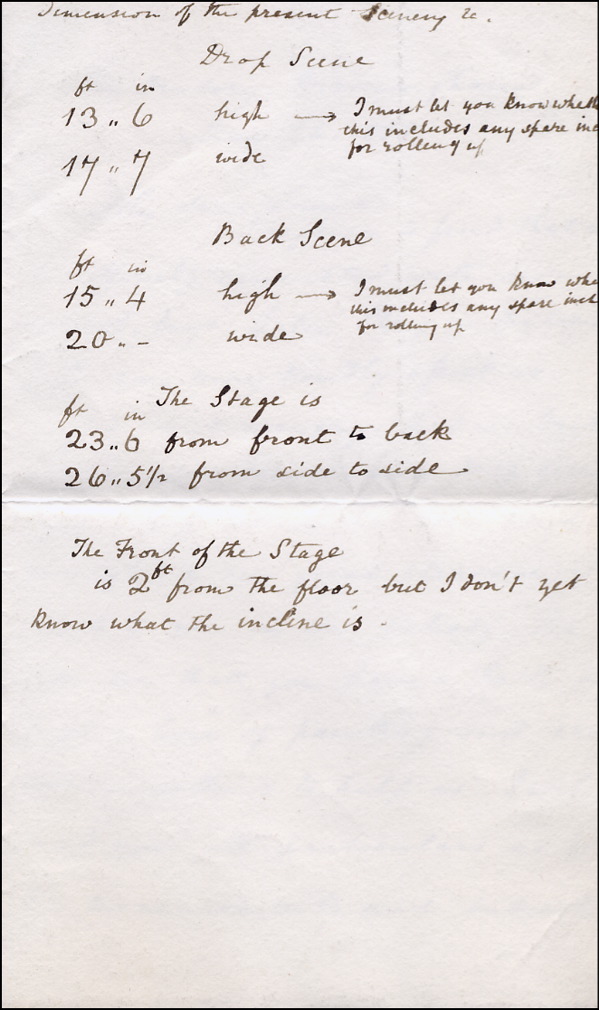 Dimension of the present Scenery &c.
Drop Scene
ft in
13 " 6 high → I must let you know wheth
this includes any spare inc
for rolling up
17 " 7 wide
Back Scene
ft in
15 " 4 high → I must let you know whe
this includes any spare inch
for rolling up
20 " - wide
The Stage is
ft in
23 " 6 from front to back
26 " 5 1/2 from side to side
The Front of the Stage
is 2 ft from the floor but I don't yet
know what the incline is -